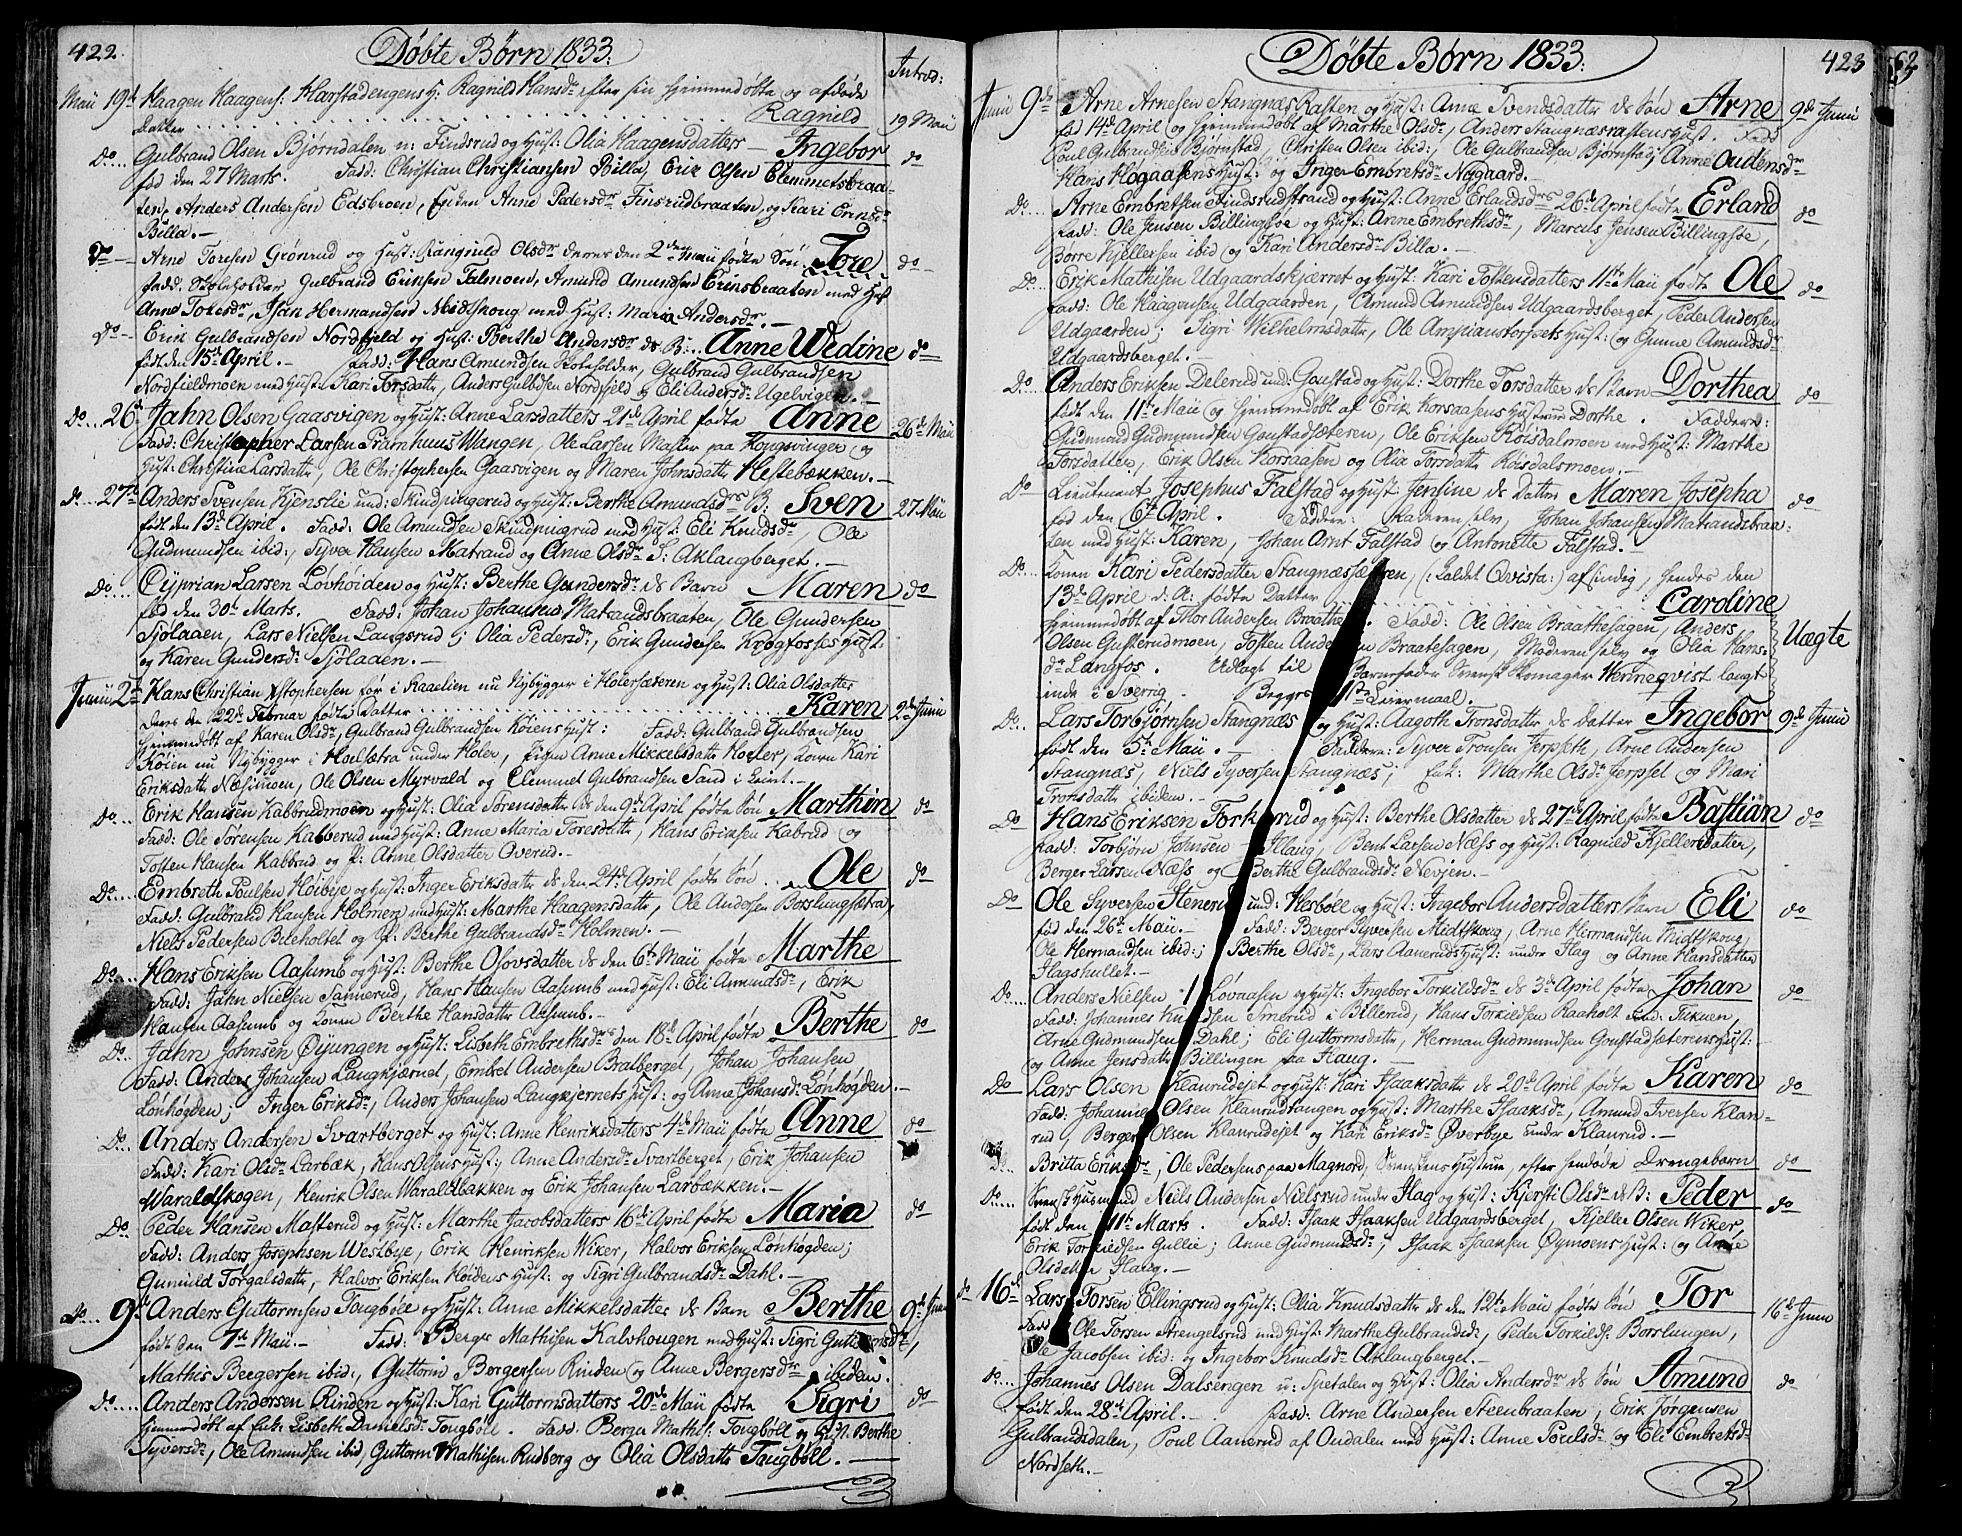 422. Døbte Børn 1833. Introd:
Maii 19d Haagen Haagens: Harstadengens H: Ragnild Hansdr efter sin hjemmedøbte og afdøde
Datter . . . Ragnild 19 Maii
Do... Gulbrand Olsen Bjørndalen u: Findsrud og Hust: Olia Haagensdatters Ingebor do
fød den 27 Marts. Fadd: Christian Christiansen Billa, Erik Olsen Clemmetsbraa-
ten, Anders Andersen Edsbroen, Enken Anne Pedersdr Finsrudbraaten, og Kari
Billa.
Arne Toresen Grønrud og Hust: Rangnild Olsdr deres den 2den Maii fødte Søn Tore do
Fadd: Skoleholder Gulbrand Erinsen Talmoen, Amund Amundsen Erinsbraaten med Hust
Anne Toresdr, Jan Hermandsen Midtskoug med Hust: Maria Andersdr.
do Erik Gulbrandsen Nordfjeld og Hust: Berthe Andersdr ds B: Anne Wedine do
født den 15d April. Fadd: Hans Amundsen Skoleholder, Gulbrand Gulbrandsen
Nordfieldmoen med Hust: Kari Torsdattr, Anders Gulbdsen Nordfjeld og Eli Andersdr Ugelvigen.
do. 26d Jahn Olsen Gaasvigen og Hust: Anne Larsdatters 21d April fødte Anne 26d Maii
Fadd: Christopher Larsen Pramhuus Wangen, Ole Larsen Master paa Kongsvinger og
Hust: Christine Larsdattr, Ole Christophersen Gaasvigen og Maren Johnsdattr Hestebækken.
do... 27d Anders Svensen Kjenslie und: Skindpungrud og Hust: Berthe Amundsdrs B: Sven 27 Maii
født den 13d April. Fadd: Ole Amundsen Skindpungrud med Hust: Eli Knudsdr, Ole
Gudmundsen ibid:, Syver Hansen Matrand og Anne Olsdr S: Aklangberget.
do.... Cyprian Larsen Løvhøiden og Hust: Berthe Gundersdr ds Barn Maren do
fød den 30d Marts. Fadd: Johan Johansen Matrandsbraaten, Ole Gundersen
Sjølaaen, Lars Nielsen Langsrud; Olia Pedersdr, Erik Gundersen Krogfosses Hust
og Karen Gundersdr Sjølaaen.
Junii 2d Hans Christian Xstophersen før i Raaelien nu Nybygger i Holersæteren og Hust: Olia Olsdatter
deres den 22d Februar fødte Datter . . . Karen 2d Junii
hjemmedøbt af Karen Olsdr, Gulbrand Gulbrandsen Køiens Hust: Fadd: Gulbrand Gulbrandsen
Køien nu Nybygger i Hoelsætra under Holer, Pigen Anne Mikkelsdattr Hoeler, Konen Kari
Eriksdattr Næsimoen, Ole Olsen Myrvold og Clemmet Gulbrandsen Sand i Leirt.
Do... Erik Hansen Kabbrudmoen og Hust: Olia Sørensdattr ds den 9d April fødte Søn Marthin do
Fadd: Ole Sørensen Kabberud med Hust: Anne Maria Toresdattr, Hans Eriksen Kabrud og
Tosten Hansen Kabbrud og P: Anne Olsdatter Overud.
Do... Embreth Poulsen Høibye og Hust: Inger Eriksdattr ds den 24d April fødte Søn Ole do
Fadd: Gulbrand Hansen Holmen med Hust: Marthe Haagensdattr, Ole Andersen Borslungsætra,
Niels Pedersen Bileholtet og P: Berthe Gulbrandsdr Holmen.
Do. Hans Eriksen Aasumb og Hust: Berthe Osovsdatter ds den 6te Maii fødte Marthe
Fadd: Jahn Nielsen Sannerud, Hans Hansen Aasumb med Hust: Eli Amundsdr, Erik
Hansen Aasumb og Konen Berthe Hansdattr Aasumb.
Do. Jahn Johnsen Øiungen og Hust: Lisbeth Embrethsdrs den 18d April fødte Berthe do
Fadd: Anders Johansen Langkjærnet, Embret Andersen Bratberget, Johan Johansen
Lønhøgden; Inger Eriksdr, Anders Johansen Langkjernets Hust: og Anne Johansdr Lønhøgden.
Do... Anders Andersen Svartberget og Hust: Anne Henriksdatters 4de Maii fødte Anne do
Fadd: Kari Olsdr Larbæk, Hans Olsens Hust:, Anne Andersdr Svartberget, Erik Johansen
Waraldskogen, Henrik Olsen Waraldbakken og Erik Johansen Larbækken.
Do Peder Hansen Masterud og Hust: Marthe Jacobsdatters 16d April fødte Maria do
Fadd: Anders Josephsen Westbye, Erik Henriksen Wiker, Halvor Eriksen Lønhøgden;
Gunnild Torgalsdattr, Halvor Eriksen Høidens Hust: og Sigri Gulbrandsdr Dahl.
do... 9d Anders Guttormsen Tougbøle og Hust: Anne Mikkelsdattes ds Barn Berthe 9d Junii
født den 7d Maii. Fadd: Berger Mathisen Kalvhougen med Hust: Sigri Guttormsdr,
Mathis Bergersen ibid:, Guttorm Bergersen Rinden og Anne Bergersdr ibidem.
do.... Anders Andersen Rinden og Hust: Kari Guttormsdatters 20de Maii fødte Sigri do
hjemmedøbt af Enke Lisbeth Danielsdr Tougbøll. Fadd: Berger Maths: Tougbøll og Hust. Berthe
Syversdr, Ole Amundsen ibid, Guttorm Mathisen Rudberg og Olia Olsdattr Tougbøll.
Døbte Børn 1833. 423
Junii 9d Arne Arnesen StangnæsRasten og Hust: Anne Svendsdatter ds Søn Arne 9d Junii
fød 14d April og hjemmedøbt af Marthe Olsdr, Anders Stangnæsrastens Hust. Fadd
Poul Gulbrandsen Bjørnstad, Christen Olsen ibid:, Ole Gulbrandsen Bjørnstad; Anne Oudensdr
Hans Høgaasens Hust: og Inger Embretsdr Nøgaard.
Do.... Arne Embretsen Findsrudstrand og Hust: Anne Erlandsdrs 26d April fødte Erland do
Fadd: Ole Jensen Billingsøe og Hust: Anne Embrethsdr, Marcus Jensen Billingsøe,
Børre Kjellersen ibid og Kari Andersdr Billa.
Do... Erik Mathisen Udgaardskjærret og Hust: Kari Tostensdatters 11te Maii født Ole do
Fadd: Ole Haagensen Udgaarden, Amund Asmundsen Udgaardsberget, Peder Andersen
Udgaarden; Sigri Wilhelmsdattr, Ole Ampianstorpets Hust: og Gunne Amundsdr
Udgaardsberget.
Do.... Anders Eriksen Delerud und: Goustad og Hust: Dorthe Torsdatter ds Barn Dorthea do
født den 11te Maii og hjemmedøbt af Erik Korsaasens Hustrue Dorthe. Faddere:
Gudmund Gudmundsen Goustadsæteren, Ole Eriksen Røisdalmoen med Hust: Marthe
Torsdatter, Erik Olsen Korsaasen og Olia Torsdattr Røisdalsmoen.
Do Lieutenant Josephus Falstad og Hust Jensine ds Datter Maren Josepha do
fød den 6te April. Faddere: Faderen selv, Johan Johansen Matrandsbraa-
ten med Hust: Karen, Johan Arnt Falstad og Antonette Falstad.
Do.. Konen Kari Pedersdatter Stangnæssæteren, (: kaldet Qvista:) afsindig, hendes den
13d April d. A: fødte Datter . . . Cardine
hjemmedøbt af Thor Andersen Braathe. Fadd: Ole Olsen Braathesagen, Anders
Olsen Gusterudmoen, Tosten Andersen Braatesagen, Moderen selv og Olia Hans- Uægte
dr Langfos. Udlagt til Barnefader Svensk Skomager Wennegvist langt
inde i Sverrig. Begges 1ste Leiermaal.
Do.. Lars Torbjørnsen Stangnæs og Hust: Aagoth Tronsdattr ds Datter Ingebor 9d Junii
født den 5te Maii. Faddere: Syver Tronsen Jerpseth, Arne Andersen
Stangnæs, Niels Syversen Stangnæs; Enk: Marthe Olsdr Jerpset og Mari
Tronsdattr ibidem.
Do Hans Eriksen Torkerud og Hust: Berthe Olsdatter ds 27de April fødte Bastian do
Fadd: Torbjørn Johnsen Haug, Bent Larsen Næss og Hust: Ragnild Kjellersdatter,
Berger Larsen Næss og Berthe Gulbrandsdr Nevjen.
Do Ole Syversen Stenerud und: Hesbøll og Hust: Ingebor Andersdatters Barn Eli do
fød den 26d Maii. Fadd: Berger Syversen Midtskoug, Arne Hermandsen Midtskoug,
Ole Hermandsen ibid:; Berthe Olsdr, Lars Aaneruds Hust: under Hag og Anne Hansdatter
Hagshullet.
Do.... Anders Nielsen Løvaasen og Hust: Ingebor Torkildsdr ds 3d April fødte Johan do
Fadd: Johannes Knudsen Smerud i Billerud, Hans Torkildsen Raaholt,
Arne Gudmundsen Dahl; Eli Guttormsdatter, Herman Gudmundsen Goustadsæterens Hust:
og Anne Jensdattr Billingen paa Haug.
Do Lars Olsen Klanrudejet og Hust: Kari Isaaksdattr ds 20d April fødte Karen do
Fadd: Johannes Olsen Klanrudtangen og Hust: Marthe Isaaksdr, Amund Iversen Klan-
rud, Berger Olsen Klanrudejet og Kari Eriksdr Øverbye under Klanrud.
Do.. Britta Eriksdr, Ole Pedersens paa Magnord, Svenskens Hustrue, efter hendøde Drengebarn do
Do.... Svensk Husmand Niels Andersen Nielsrud under Hag og Hust: Kjersti Olsdr ds B: Peder do
født den 11te Marts. Fadd: Isaak Isaaksen Udgaardsberget, Kjeller Olsen Wiker,
Erik Torkildsen Gullie; Anne Gudmundsdr, Isaak Isaaksen Øymoens Hust: og Anne
Olsdatter Haug.
do 16d Lars Torsen Ellingsrud og Hust: Olia Knudsdattr ds den 12te Maii fødte Søn Tor 16d Junii
Fadd: Ole Torsen Strengelsrud med Hust: Marthe Gulbrandsd:, Peder Torkilds: Borslungen,
Ole Jacobsen ibid: og Ingebor Knudsdr Aklangberget.
do... Johannes Olsen Dalsengen u: Spetalen og Hust: Olia Andersdr ds Søn Amund do
født den 28de April. Fadd: Arne Andersen Steenbraaten, Erik Jørgensen
Gulbrandsdalen, Poul Aanerud af Oudalen med Hust: Anne Poulsdr og Eli Embretsdr
Nordseth.